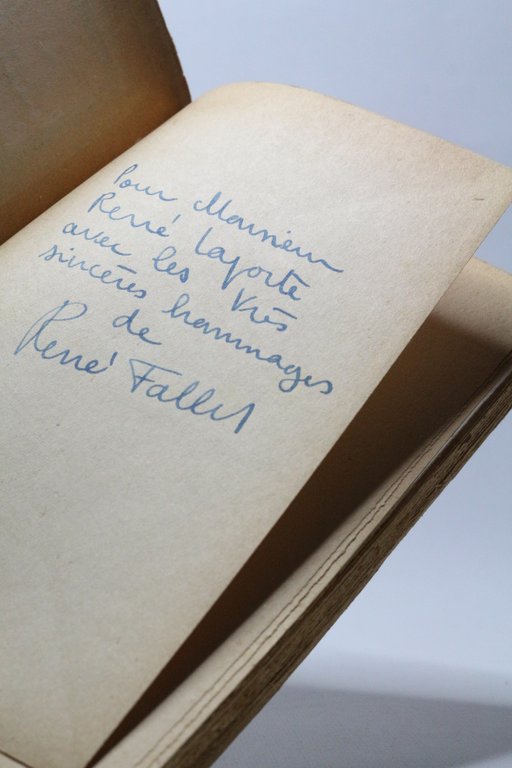 Pour Monsieur
René Laporte
avec les très
sincères hommages
de
René Fallet